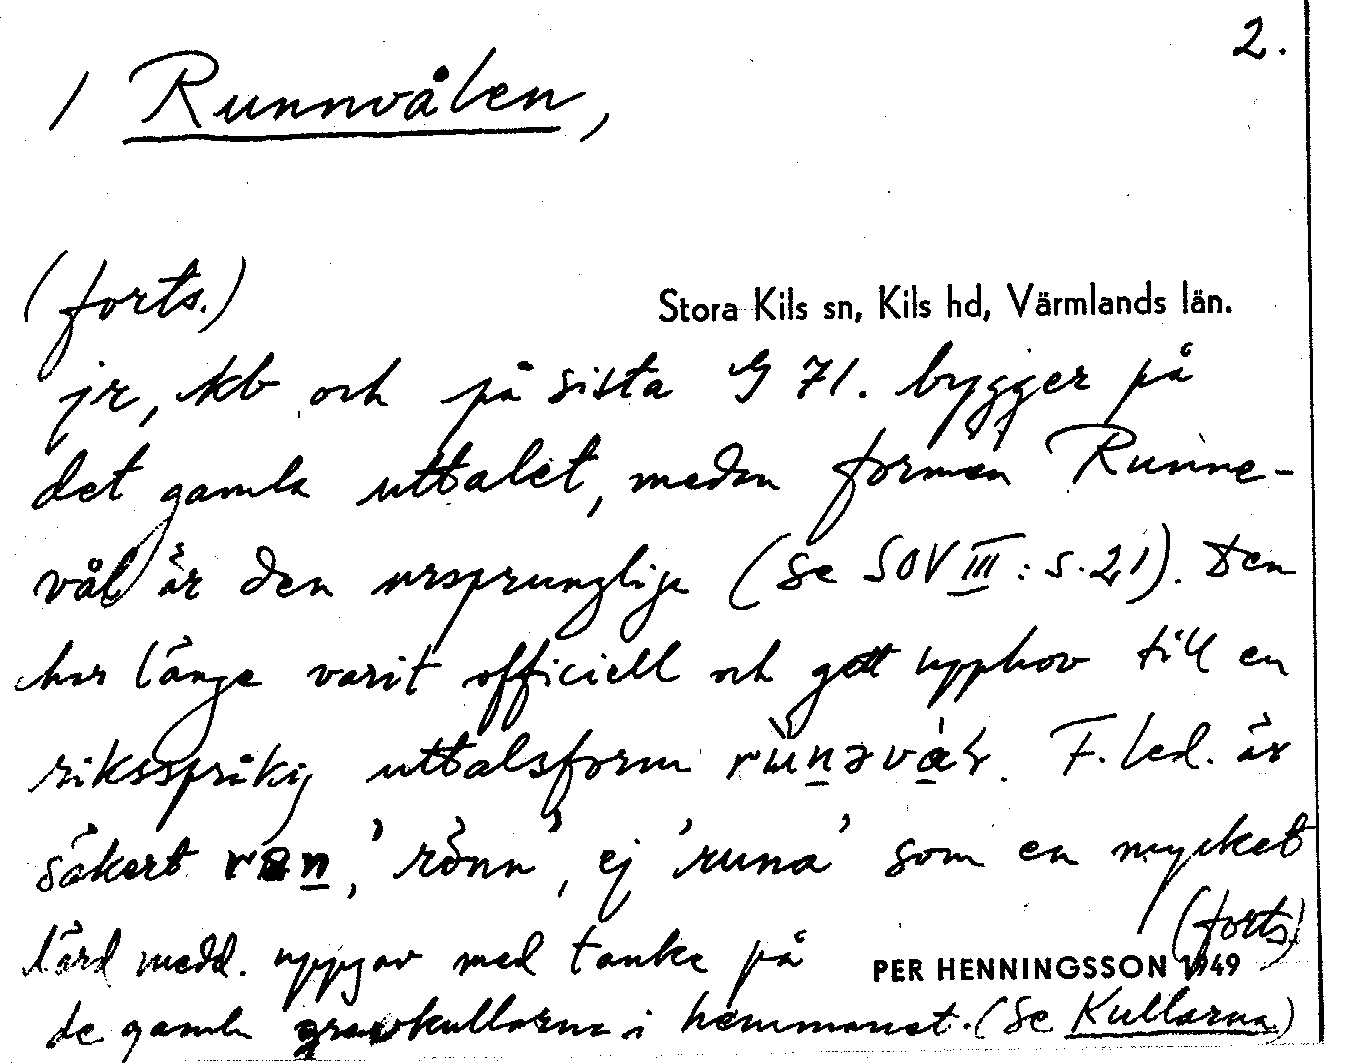 2.
/ Runnvålen,
(forts.)
Stora Kils sn, Kils hd, Värmlands län.
jr, kb och på sista G 71. bygger på
det gamla uttalet, medan formen Runne-
vål är den ursprunglige (se SOV III: s. 21). Den
har länge varit officiell och gett upphov till en
riksspråkig uttalsform F. led. är
säkert 'rönn', ej 'runa' som en mycket
lärd medd. uppgav med tanke på
(forts)
PER HENNINGSSON 1949
de gamla gravkullarna i hemmanet. (Se Kullarna)